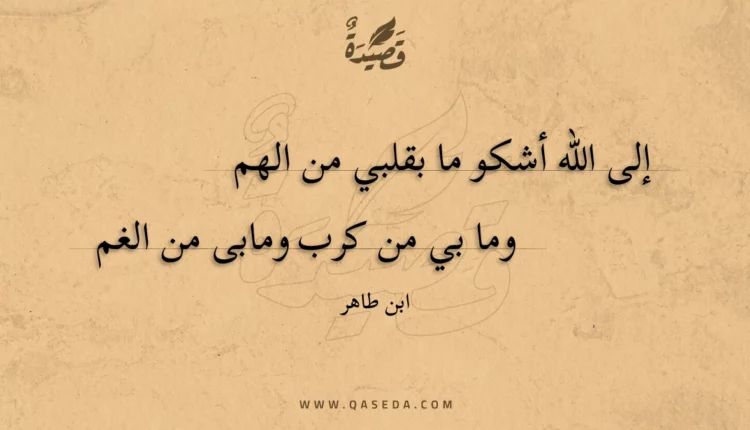 قَصِيْدَةٌ
إلى الله أشكو ما بقلبي من الهم
وما بي من كرب ومابى من الغم
ابن طاهر
WWW.QASEDA.COM